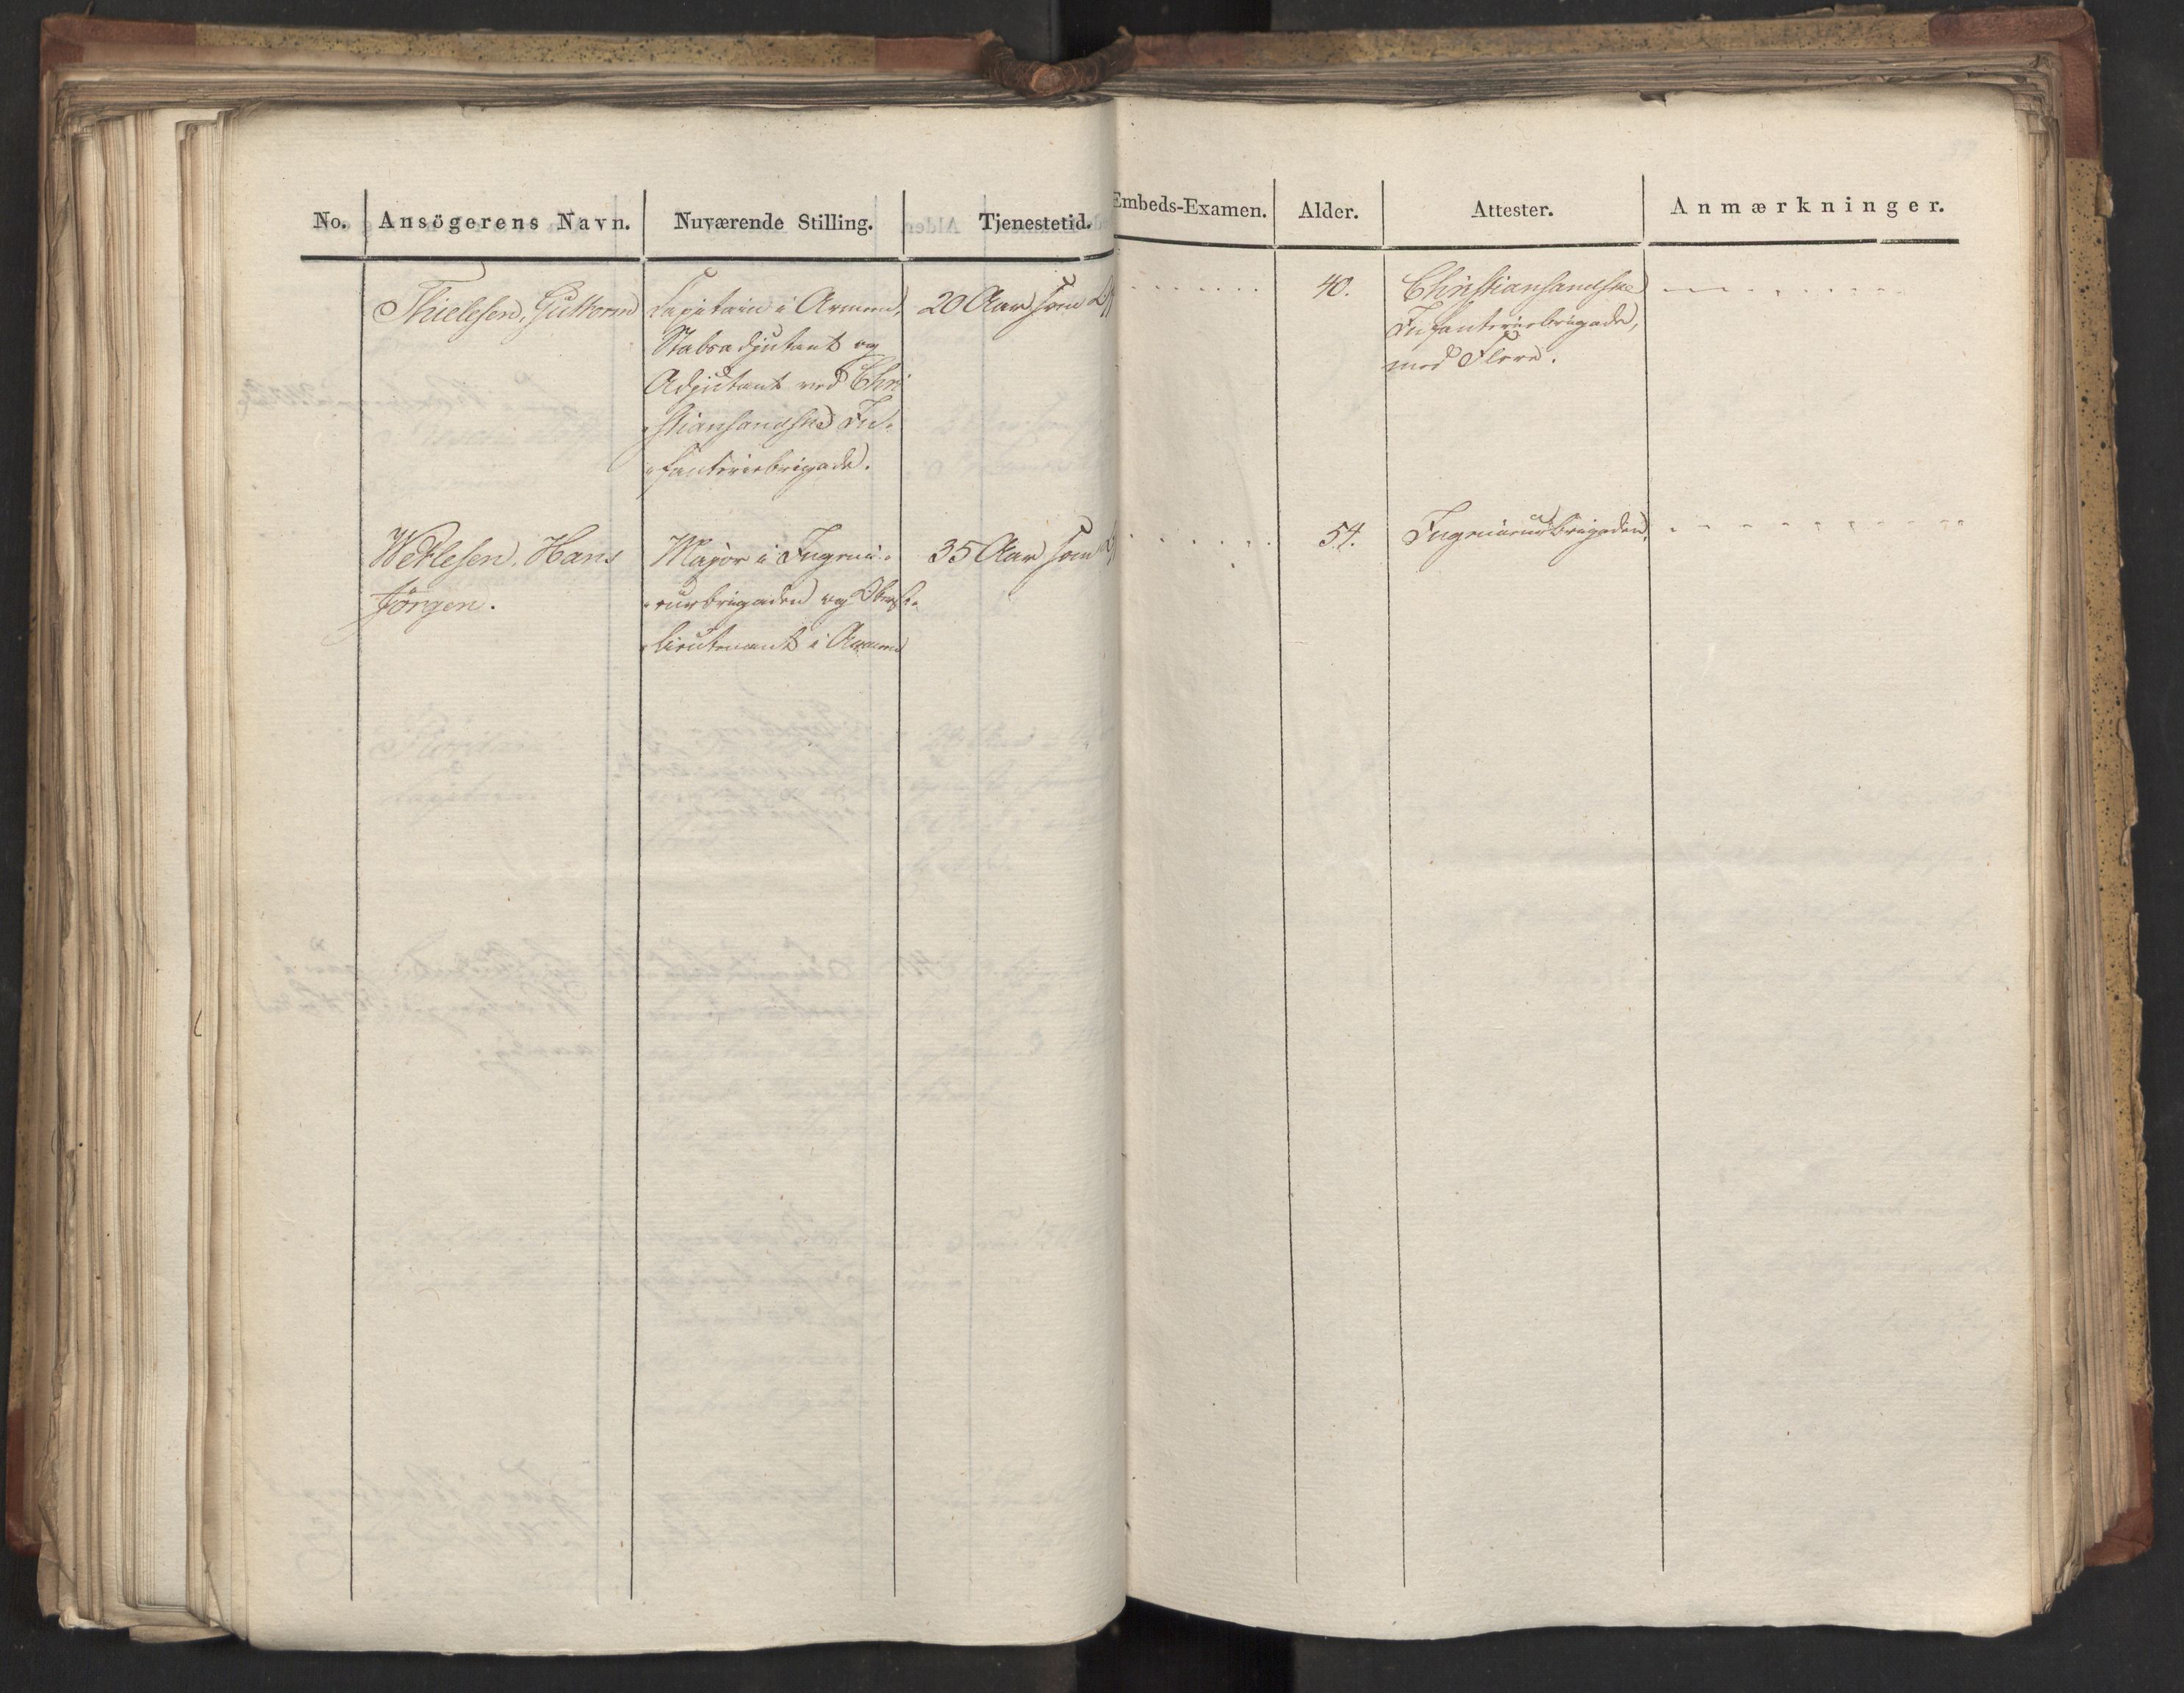 No. Ansögerens Navn. Nuværende Stilling. Tjenestetid. Embeds-Examen. Alder. Attester. Anmærkninger.
Thielesen, Guttorm
Capitain i Armeen,
Stabsadjutant og
Adjutant ved Chri
stiansandske In-
fanteriebrigade.
20 Aar som
40.
Christiansandske
Infanteriebrigade,
med Flere.
Wetlesen. Hans
Jörgen.
Major i Ingeni-
eurbrigaden og Oberst-
lieutenant i Armeen
35 Aar som
54.
Ingenieurbrigaden,